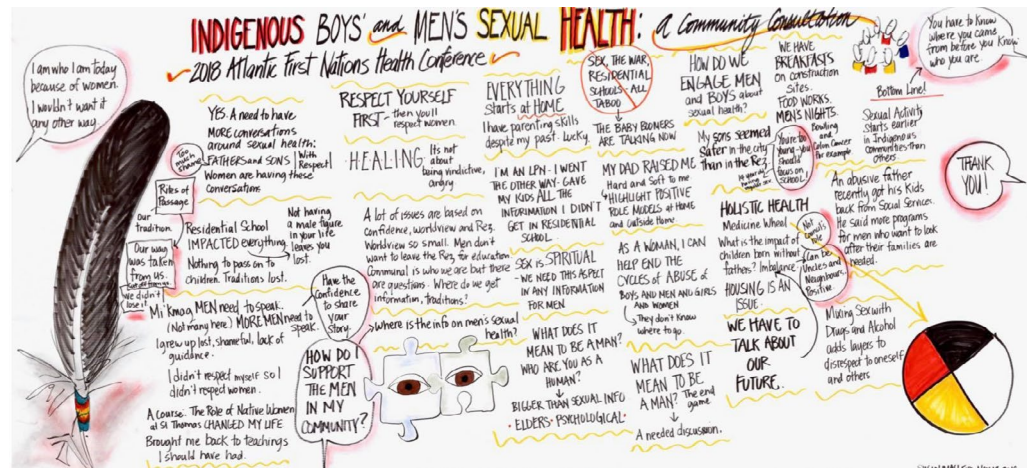 INDIGENOUS BOYS' and MEN'S SEXUAL HEALTH: a Community Consultation
2018 Atlantic First Nations Health Conference
I am who I am today
because of women.
I wouldn't want it
any other way.
Too much shame
Rites of
Passage
Our
tradition.
Our way
was taken
from us.
We didn't
lose it!
YES. A need to have
MORE conversations
around sexual health:
FATHERS and SONS With Respect
Women are having these
conversations
Residential School
IMPACTED everything
Nothing to pass on to
children. Traditions lost.
Not having
a male figure
in your life
leaves you
lost.
Mi'kmaq MEN need to speak.
(Not many here) MORE MEN need to
speak.
I grew up lost, shameful, lack of
guidance.
I didn't respect myself so I
didn't respect women.
A course: The Role of Native Women
at St Thomas CHANGED MY LIFE
Brought me back to teachings
I should have had.
RESPECT YOURSELF
FIRST - then you'll
respect women.
HEALING Its not
about
being vindictive,
angry
A lot of issues are based on
Confidence, worldview and Rez.
Worldview so small. Men don't
want to leave the Rez, for education
Communal is who we are but there
are questions. Where do we get
information, traditions?
Have the
Confidence
to share
your
Story.
Where is the info on men's sexual
health?
HOW DO I
SUPPORT
THE MEN
IN MY
COMMUNITY?
EVERYTHING
Starts at HOME
I have parenting skills
despite my past. Lucky.
I'M AN LPN - I WENT
THE OTHER WAY - GAVE
MY KIDS ALL THE
INFORMATION I DIDN'T
GET IN RESIDENTIAL
SCHOOL.
SEX IS SPIRITUAL
- WE NEED THIS ASPECT
IN ANY INFORMATION
FOR MEN
WHAT DOES IT
MEAN TO BE A MAN?
WHO ARE YOU AS A
HUMAN?
BIGGER THAN SEXUAL INFO
• ELDERS • PSYCHOLOGICAL •
SEX, THE WAR,
RESIDENTIAL
SCHOOLS - ALL
TABOO
THE BABY BOOMERS
ARE TALKING NOW
MY DAD RAISED ME
Hard and Soft to me
HIGHLIGHT POSITIVE
ROLE MODELS at Home
and Outside Home
AS A WOMAN, I CAN
HELP END THE
CYCLES OF ABUSE of
BOYS AND MEN AND GIRLS
AND WOMEN
They don't know
where to go.
WHAT DOES IT
MEAN TO BE
A MAN? The end
game
A needed discussion.
HOW DO WE
ENGAGE MEN
and BOYS about
sexual health?
My sons seemed
safer in the city
than in the Rez.
You're too
young - you
should
focus on
school.
HOLISTIC HEALTH
Medicine Wheel
What is the impact of
children born without
fathers? Imbalance
Can be
Uncles and
Neighbours.
Positive.
HOUSING IS AN
ISSUE.
WE HAVE TO
TALK ABOUT
OUR
FUTURE.
WE HAVE
BREAKFASTS
on construction
sites.
FOOD WORKS
MEN'S NIGHTS.
Bowling
and
Colon Cancer
for example
You have to Know
where you came
from before you Know
who you are.
Bottom Line!
Sexual Activity
starts earlier
in Indigenous
Communities than
others
THANK
YOU!
An abusive father
recently got his Kids
back from Social Services.
He said more programs
for men who want to look
after their families are
needed.
Mixing Sex with
Drugs and Alcohol
adds layers to
disrespect to oneself
and others